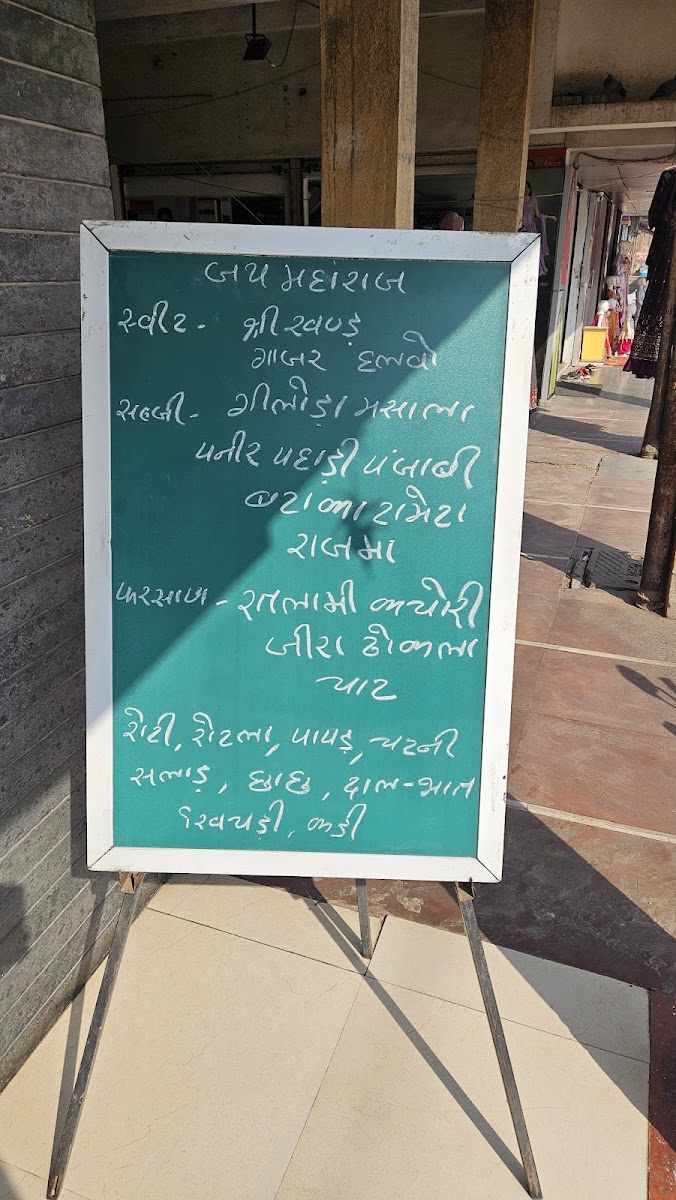 જય મહારાજ
સ્વીટ - શ્રીખણ્ડ
ગાજર હલવો
સબ્જી - ગીલોડા મસાલા
પનીર પહાડી પંજાબી
બટાકા ટામેટા
રાજમા
ફરસાણ - રતલામી કચોરી
જીરા ઢોકળા
ચાટ
રોટી, રોટલા, પાપડ, ચટની
સલાડ, છાછ, દાલ-ભાત
ખિચડી, કઢી